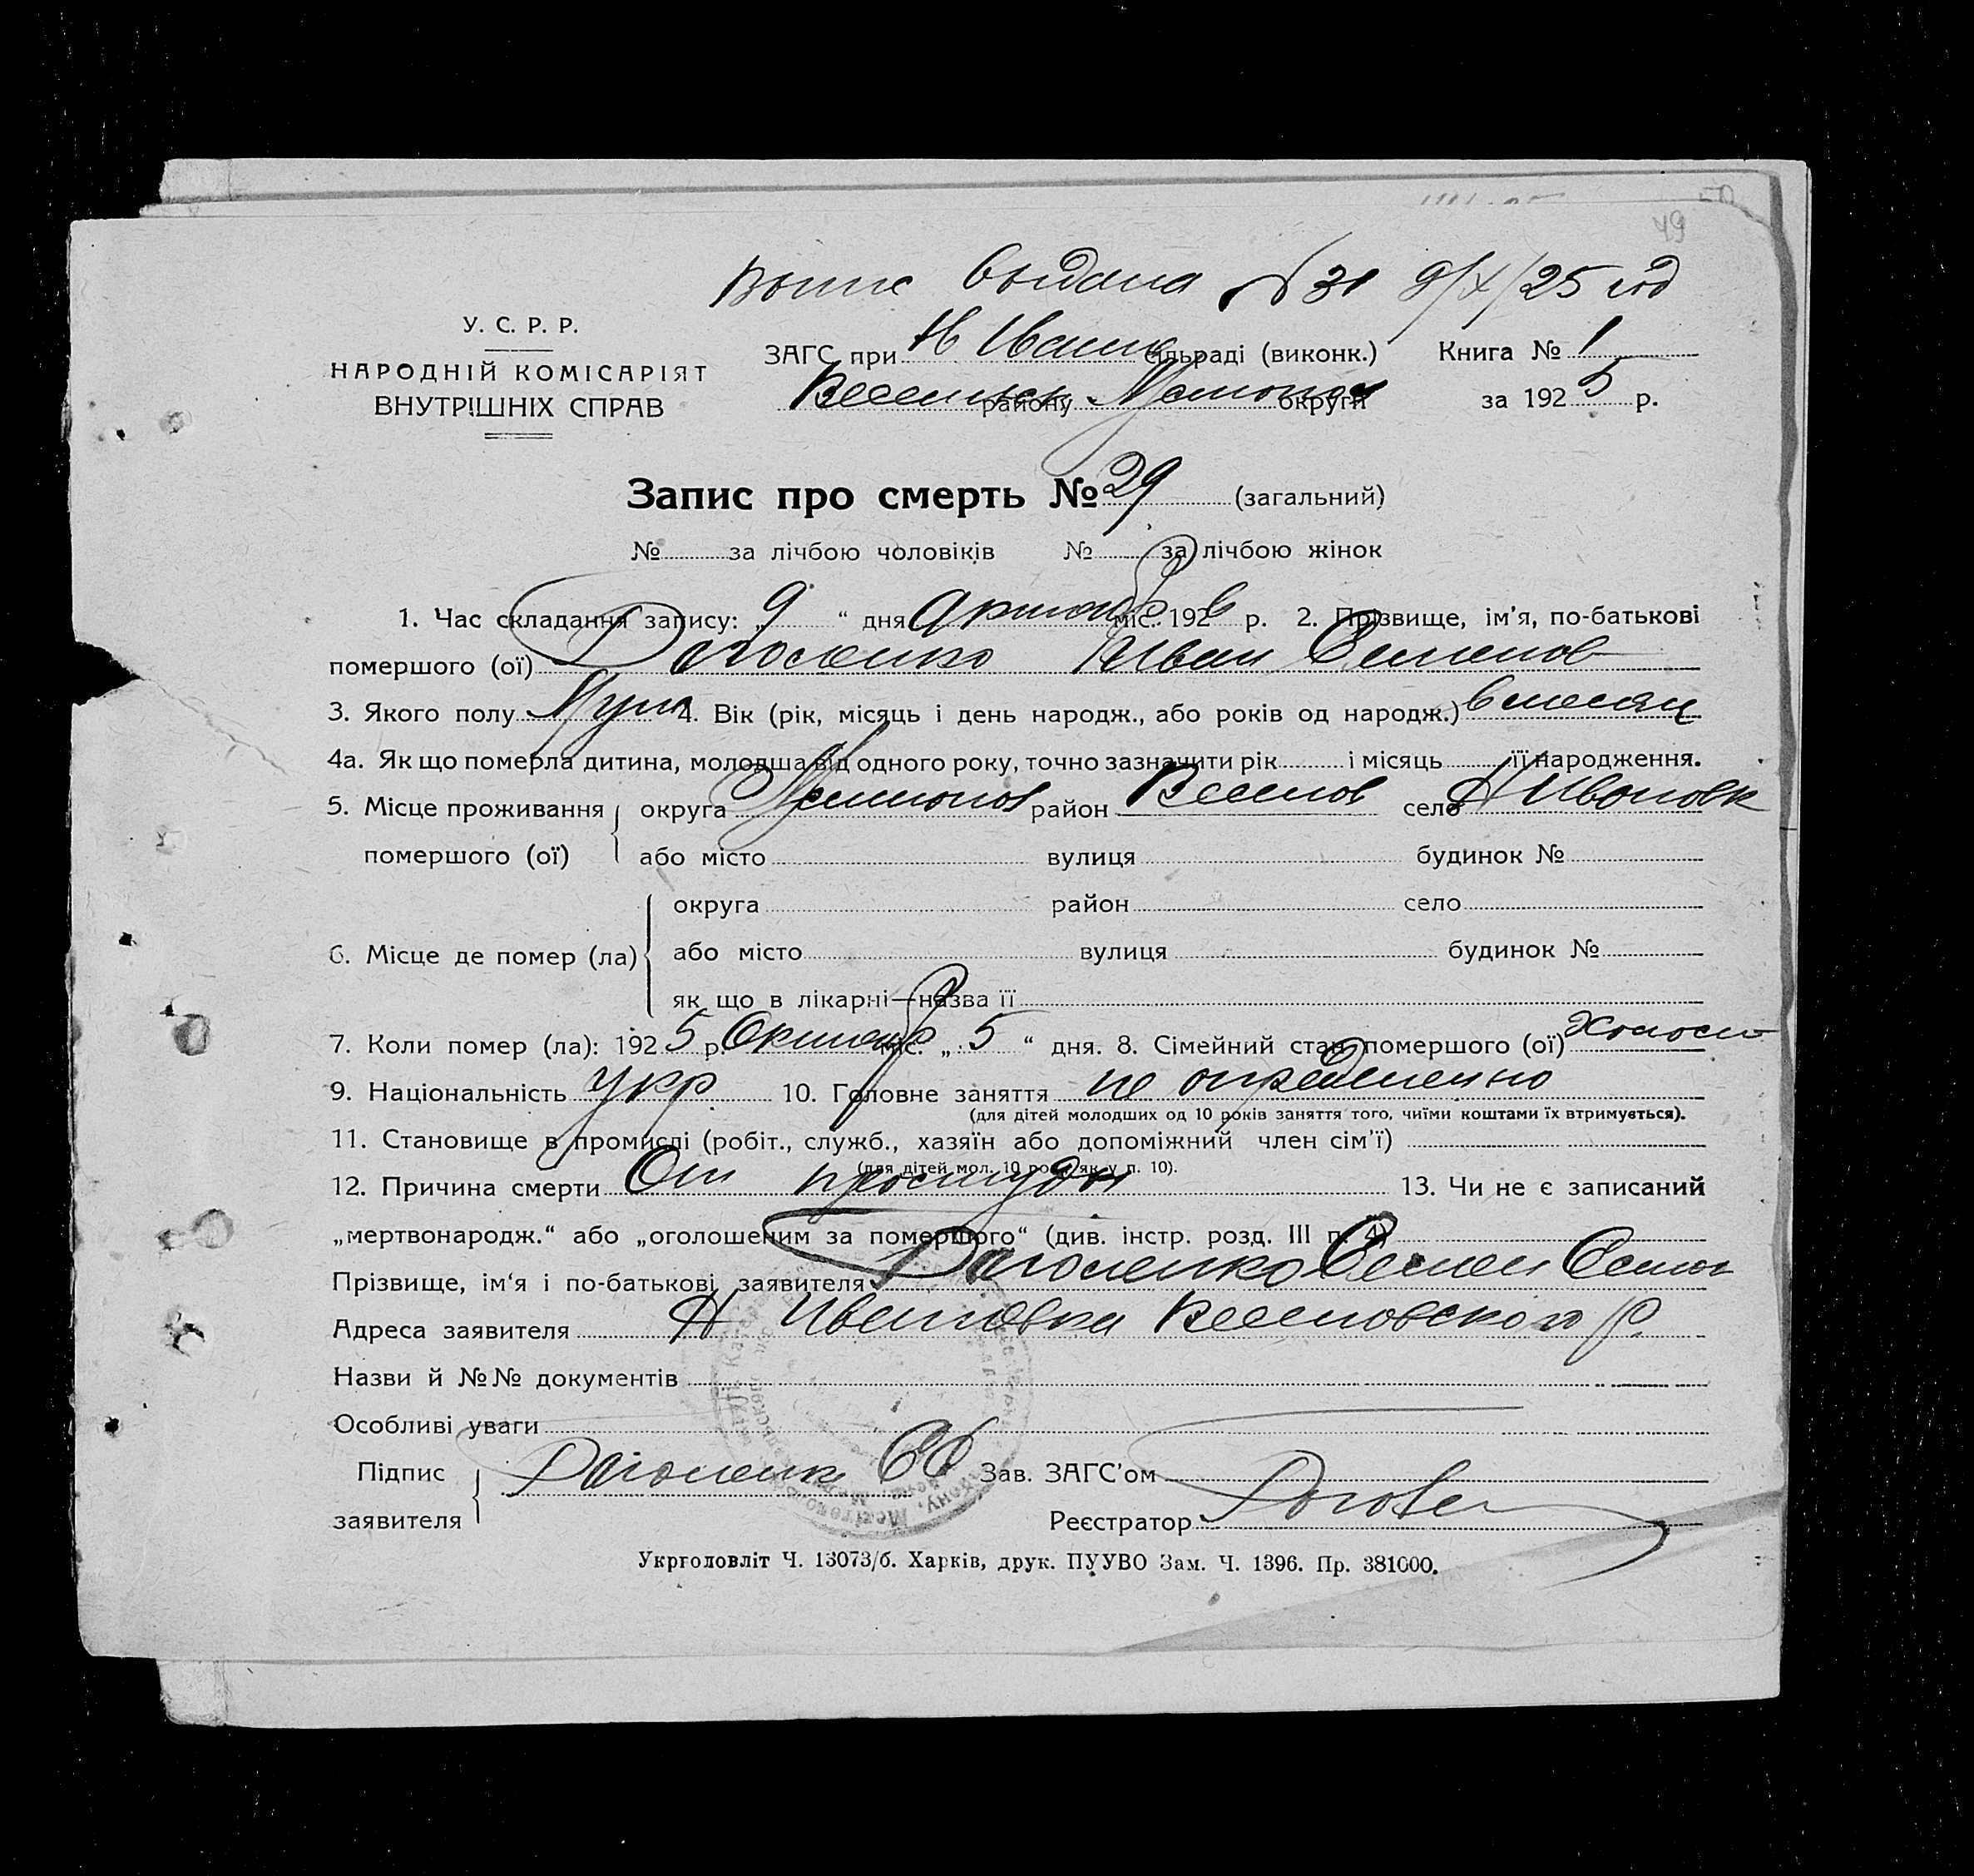 49
Выпис выдана № 31 9/X/25 год
У. С. Р. Р.
НАРОДНІЙ КОМІСАРІЯТ
ВНУТРІШНІХ СПРАВ
ЗАГС при Н Ивано сільраді (виконк.) Книга № 1
району округи за 1925 р.
Запис про смерть № 29 (загальний)
№ за лічбою чоловіків № за лічбою жінок
1. Час складання запису: „ 9 “ дня міс. 192 р. 2. Прізвище, ім'я, по-батькові
помершого (ої) Иван Семенов
3. Якого полу Муж 4. Вік (рік, місяць і день народж., або років од народж.) 6 месяц
4а. Як що померла дитина, молодша від одного року, точно зазначити рік і місяць її народження.
5. Місце проживання округа район село Н Ивановк
помершого (ої) або місто вулиця будинок №
округа район село
6. Місце де помер (ла) або місто вулиця будинок №
як що в лікарні—назва її
7. Коли помер (ла): 1925 р. Октяб міс. „ 5 “ дня. 8. Сімейний стан помершого (ої) Холост
9. Національність укр. 10. Головне заняття не определенно
(для дітей молодших од 10 років заняття того, чиїми коштами їх втримується).
11. Становище в промислі (робіт., служб., хазяїн або допоміжний член сім'ї)
(для дітей мол. 10 рок. як у п. 10).
12. Причина смерти От простуды 13. Чи не є записаний
„мертвонародж.“ або „оголошеним за помершого“ (див. інстр. розд. III п. 4)
Прізвище, ім'я і по-батькові заявителя Семен Семен
Адреса заявителя Н Ивановка Веселовского р.
Назви й №№ документів
Особливі уваги
Підпис Зав. ЗАГС'ом
заявителя Реєстратор
Укрголовліт Ч. 13073/б. Харків, друк. ПУУВО Зам. Ч. 1396. Пр. 381000.